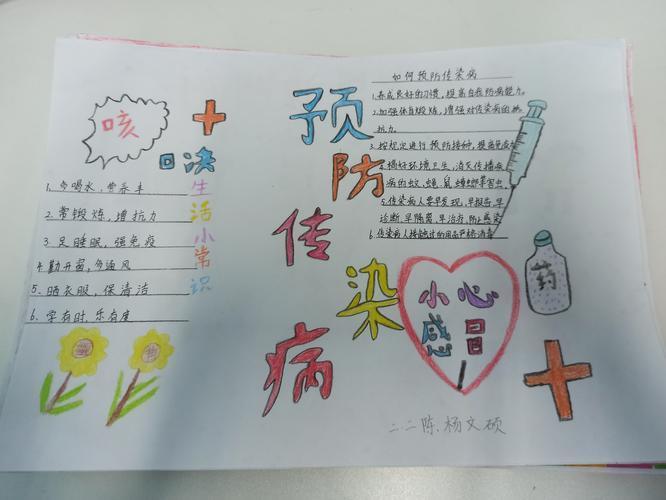 咳
口决
生活小常识
1、多喝水，常
2、常锻炼，增抗力
3、足睡眠，强免疫
4、勤开窗，多通风
5、晒衣服，保清洁
6、学有时，乐有度
预防传染病
如何预防传染病
1.养成良好的习惯，提高自我防病能力。
2.加强体育锻炼，增强对传染病的
抗力。
3、按规定进行预防接种，提高免疫
4、搞好环境卫生，消灭传播疾
病的蚊、蝇、鼠、蟑螂等害虫
5.传染病人要早发现，早报告，早
诊断，早隔离，早治疗，防止
6、传染病人接触过的用品严格消毒
小心
感冒
药
二二陈、杨文硕